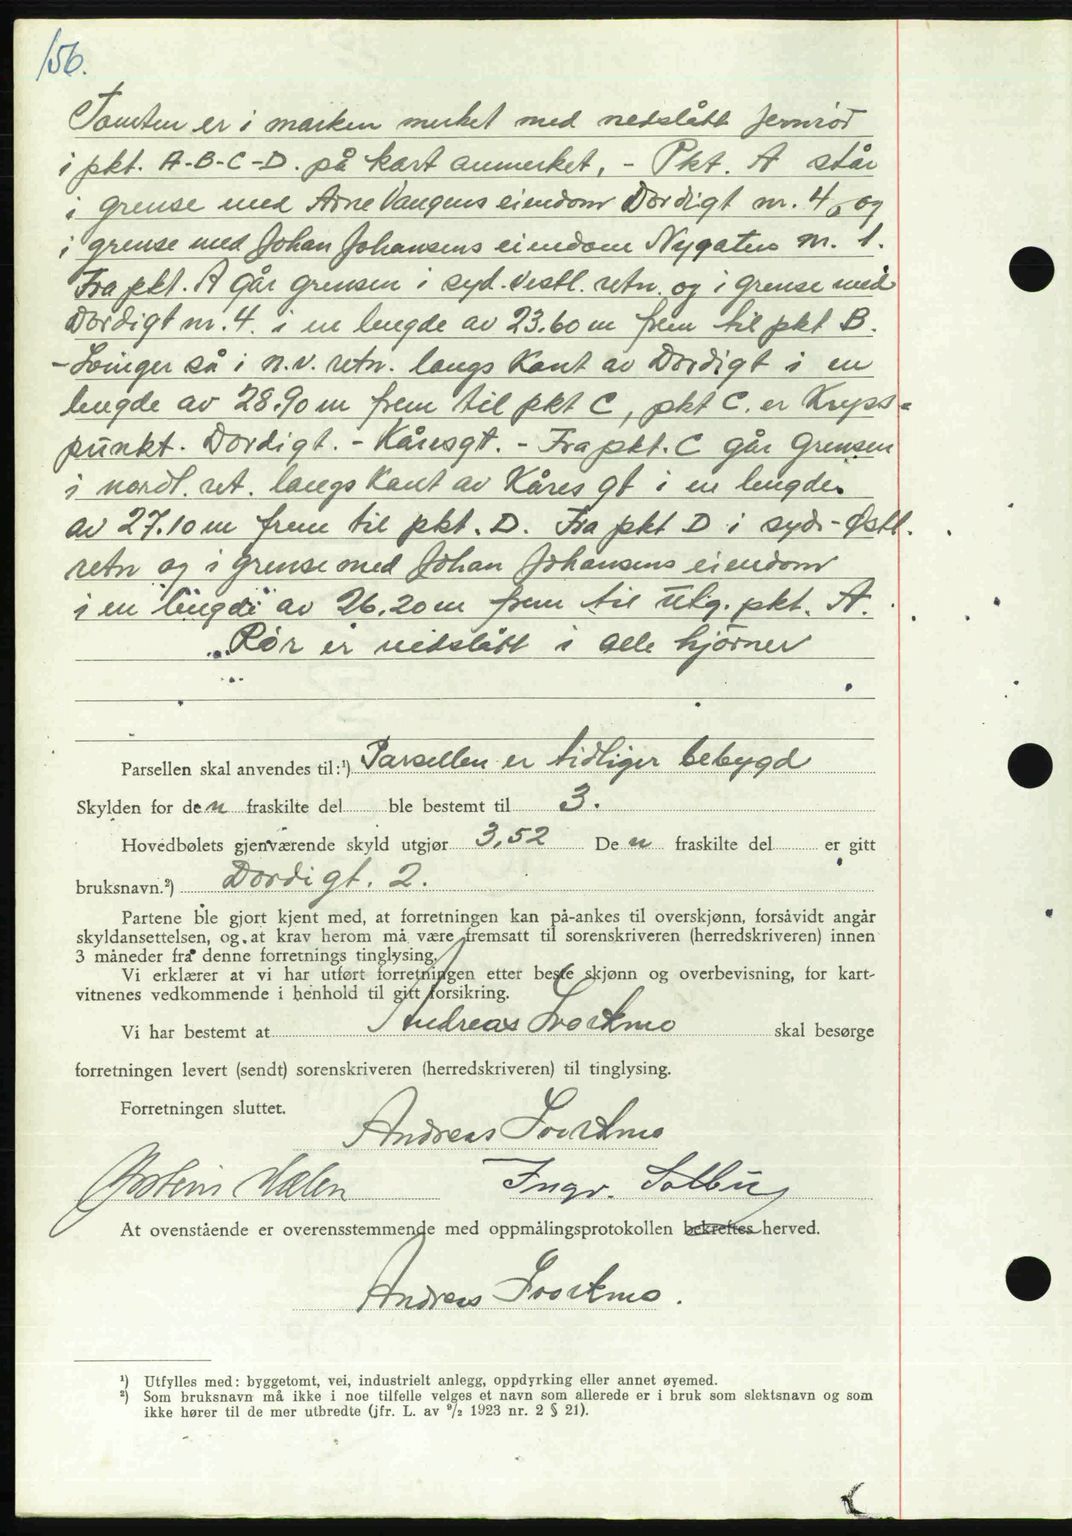 156.
Tomten er i marken merket med nedslått jernrör
i pkt. A-B-C-D. på kart anmerket, - Pkt. A står
i grense med Arne Vangens eiendom Dordigt nr. 4, og
i grense med Johan Johansens eiendom Nygaten nr. 1.
Fra pkt. A går grensen i syd.vestl. retn. og i grense med
Dordigt nr. 4. i en lengde av 23.60 m frem til pkt B.
- Svinger så i n.v. retn. langs Kant av Dordigt i en
lengde av 28.90 m frem til pkt C, pkt C. er Kryss-
punkt. Dordigt. - Kåresgt. - Fra pkt. C går Grensen
i nordl. ret. langs Kant av Kåres gt i en lengde
av 27.10 m frem til pkt. D. Fra pkt D i syd-Østl.
retn og i grense med Johan Johansens eiendom
i en lengde av 26.20 m frem til utg. pkt. A.
Rör er nedslått i alle hjörner
Parsellen skal anvendes til:¹) Parsellen er tidliger bebygd
Skylden for den fraskilte del ble bestemt til 3.
Hovedbølets gjenværende skyld utgjør 3,52 Den fraskilte del er gitt
bruksnavn.²) Dordigt. 2.
Partene ble gjort kjent med, at forretningen kan på-ankes til overskjønn, forsåvidt angår
skyldansettelsen, og at krav herom må være fremsatt til sorenskriveren (herredskriveren) innen
3 måneder fra denne forretnings tinglysing.
Vi erklærer at vi har utført forretningen etter beste skjønn og overbevisning, for kart-
vitnenes vedkommende i henhold til gitt forsikring.
Vi har bestemt at Andreas Svorkmo skal besørge
forretningen levert (sendt) sorenskriveren (herredskriveren) til tinglysing.
Forretningen sluttet.
Andreas Svorkmo
Østein Hælen Ingv. Solbu
At ovenstående er overensstemmende med oppmålingsprotokollen bekreftes herved.
Andreas Svorkmo.
¹) Utfylles med: byggetomt, vei, industrielt anlegg, oppdyrking eller annet øyemed.
²) Som bruksnavn må ikke i noe tilfelle velges et navn som allerede er i bruk som slektsnavn og som
ikke hører til de mer utbredte (jfr. L. av ⁹/₂ 1923 nr. 2 § 21).